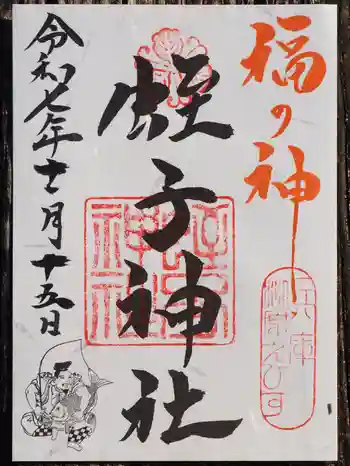 福の神
兵庫
柳原えびす
蛭子神社
蛭子神社
令和七年十二月十五日